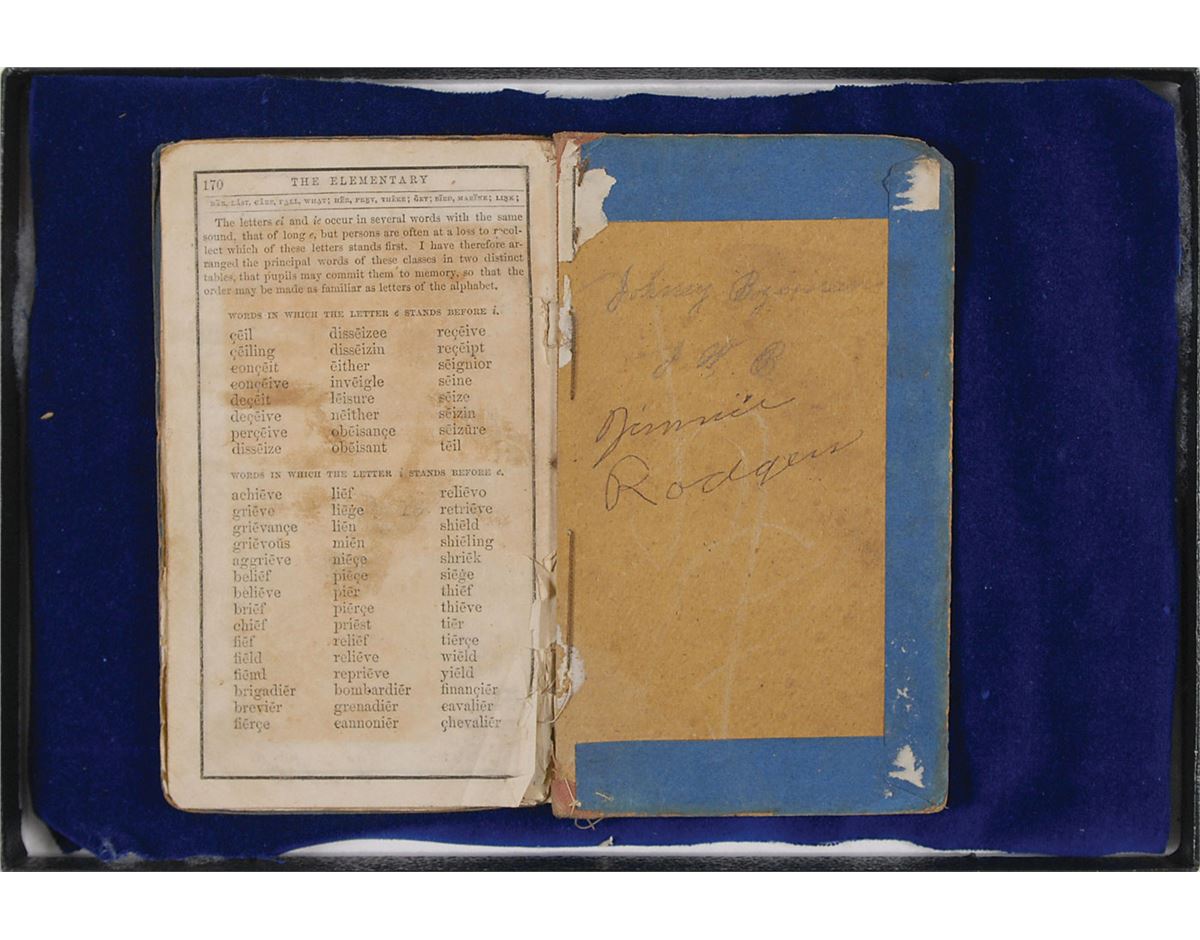 170 THE ELEMENTARY
BÄR, LÁST, CÂRE, FALL, WHAT; HẼR, PREY, THÊRE; GET; BĨRD, MARÏNE; LINK;
The letters ei and ie occur in several words with the same
sound, that of long e, but persons are often at a loss to recol-
lect which of these letters stands first. I have therefore ar-
ranged the principal words of these classes in two distinct
tables, that pupils may commit them to memory, so that the
order may be made as familiar as letters of the alphabet.
WORDS IN WHICH THE LETTER e STANDS BEFORE i.
çēil dissēizee reçēive
çēiling dissēizin reçēipt
conçēit ēither sēignior
conçēive invēigle sēine
deçēit lēisure sēize
deçēive nēither sēizin
perçēive obēisançe sēizūre
dissēize obēisant tēil
WORDS IN WHICH THE LETTER i STANDS BEFORE e.
achiēve liēf reliēvo
griēve liēġe retriēve
griēvançe liēn shiēld
griēvoŭs miēn shiēling
aggriēve niēçe shriēk
beliēf piēçe siēġe
beliēve piēr thiēf
briēf piērçe thiēve
chiēf priēst tiēr
fiēf reliēf tiērçe
fiēld reliēve wiēld
fiēnd repriēve yiēld
brigadiēr bombardiēr finançiēr
breviēr grenadiēr cavaliēr
fiērçe cannoniēr çhevaliēr
Johney Bozeman
Jimmie
Rodgers